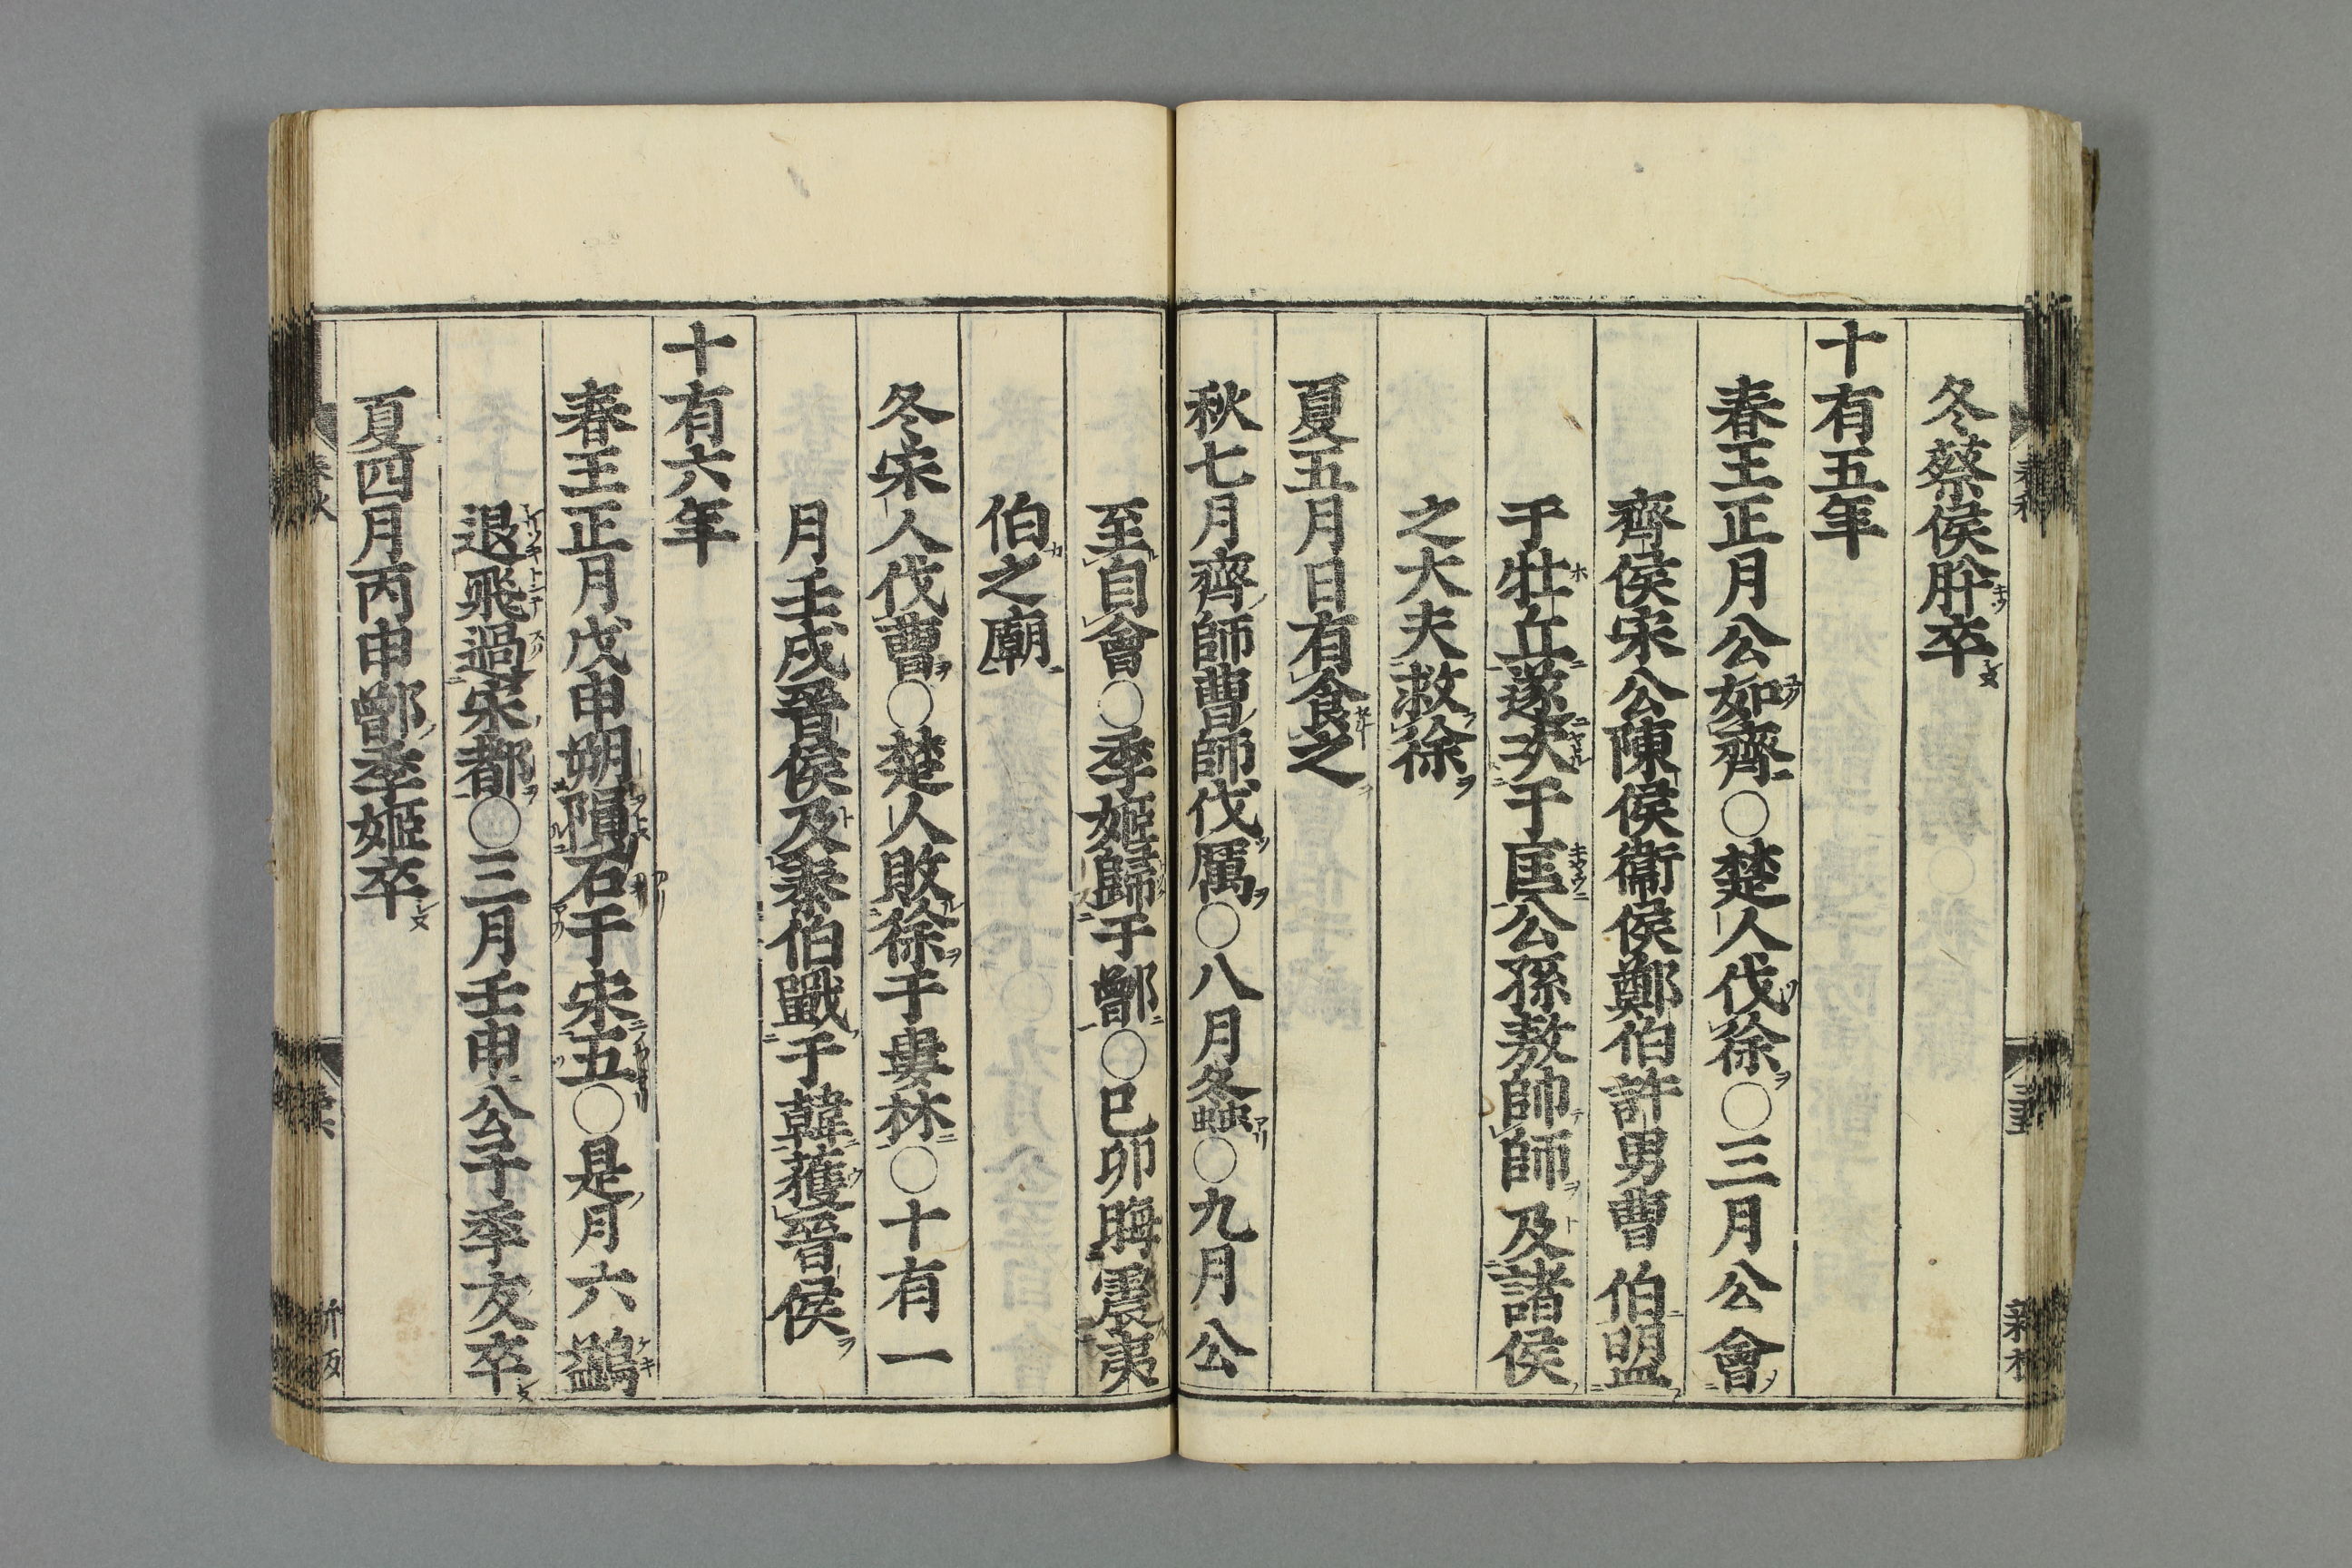 冬蔡侯肸卒
十有五年
春王正月公如齊○楚人伐徐○三月公會
齊侯宋公陳侯衞侯鄭伯許男曹伯盟
于牡丘遂次于匡公孫敖帥師及諸侯
之大夫救徐
夏五月日有食之
秋七月齊師曹師伐厲○八月螽○九月公
至自會○季姬歸于鄫○己卯晦震夷
伯之廟
冬宋人伐曹○楚人敗徐于婁林○十有一
月壬戌晉侯及秦伯戰于韓獲晉侯
十有六年
春王正月戊申朔隕石于宋五○是月六鷁
退飛過宋都○三月壬申公子季友卒
夏四月丙申鄫季姬卒